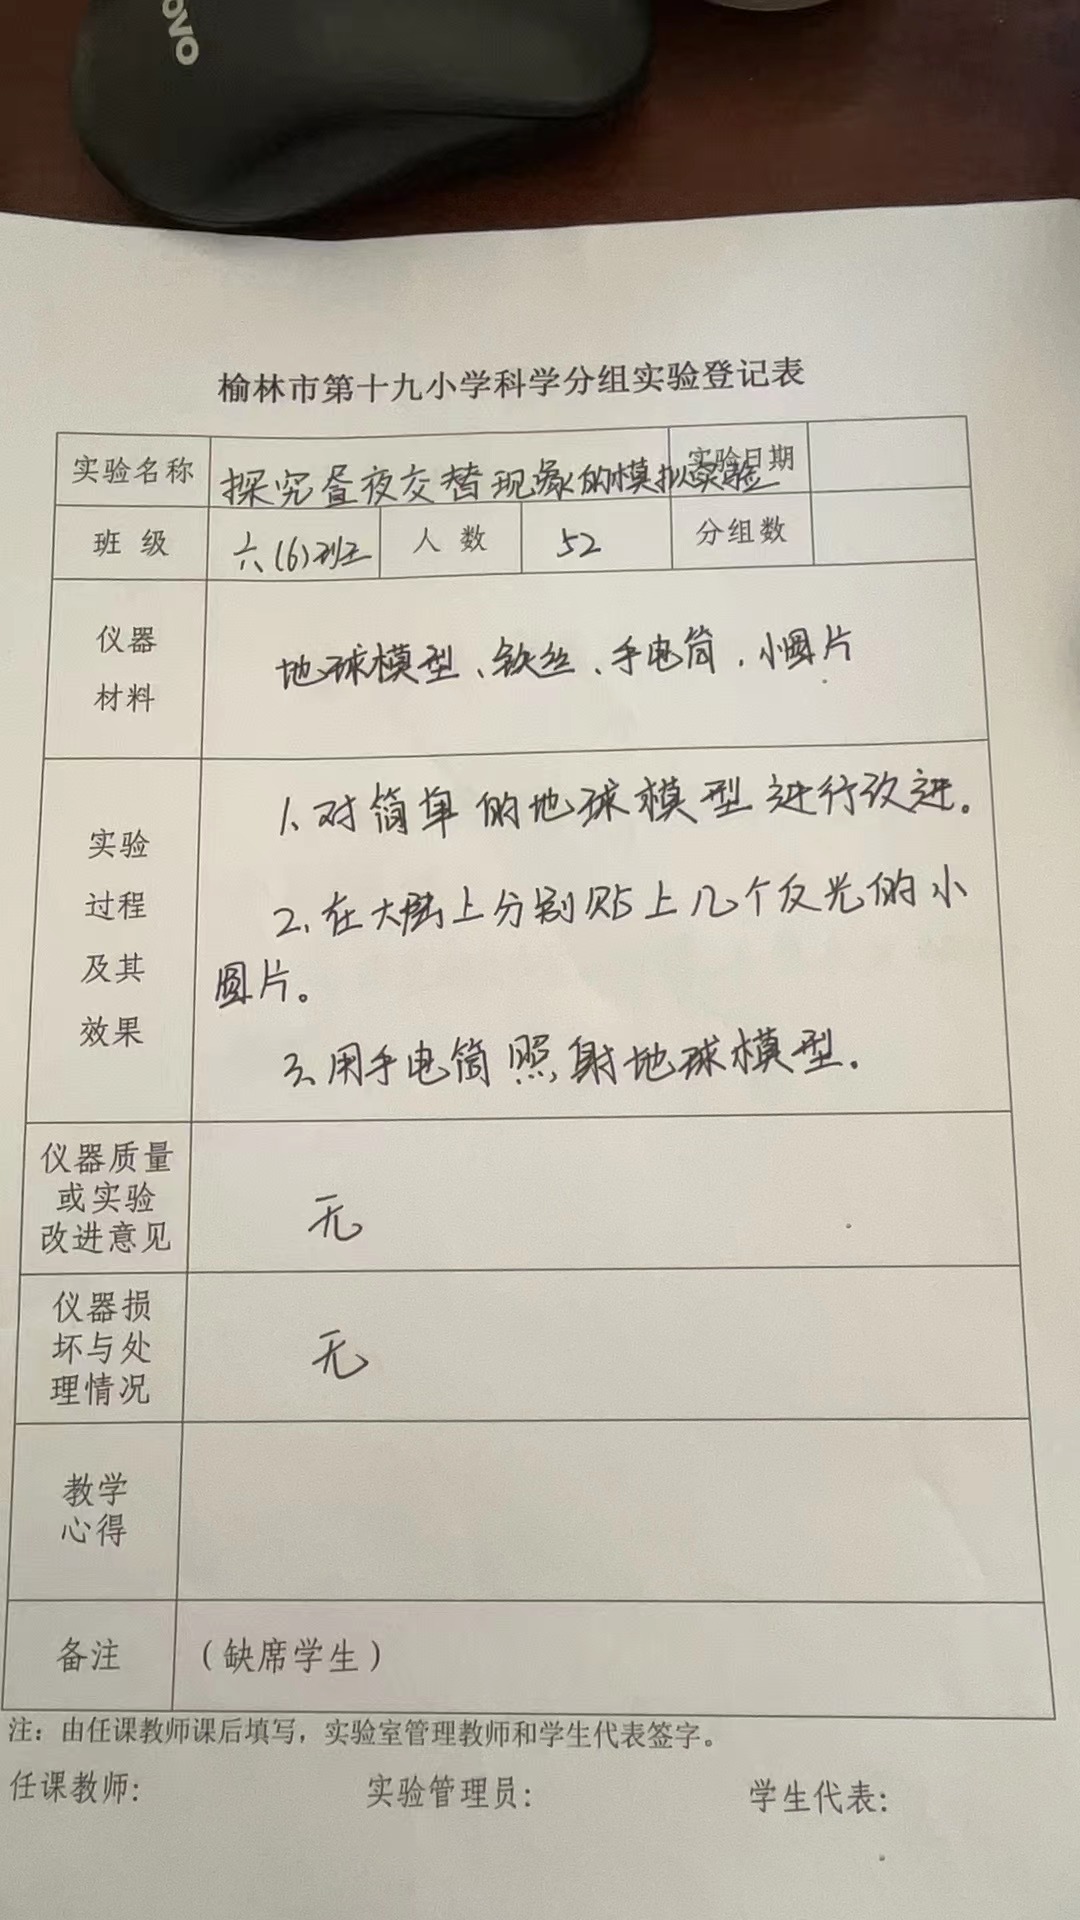 ovo
榆林市第十九小学科学分组实验登记表
实验名称 探究昼夜交替现象的模拟实验 实验日期
班级 六(6)班 人数 52 分组数
仪器
材料
地球模型、铁丝、手电筒、小圆片
实验
过程
及其
效果
1、对简单的地球模型进行改进。
2、在大陆上分别贴上几个反光的小
圆片。
3、用手电筒照射地球模型。
仪器质量
或实验
改进意见
无
仪器损
坏与处
理情况
无
教学
心得
备注 （缺席学生）
注：由任课教师课后填写，实验室管理教师和学生代表签字。
任课教师： 实验管理员： 学生代表：